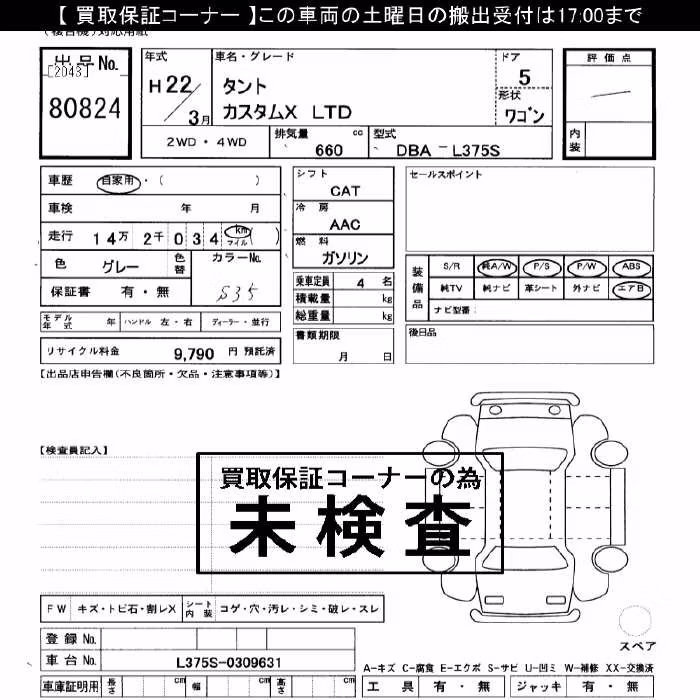 【 買取保証コーナー 】この車両の土曜日の搬出受付は17:00まで
出品No.
[2043]
80824
年式
H22/3月
車名・グレード
タント
カスタムX LTD
ドア
5
形状
ワゴン
評価点
内装
2WD・4WD
排気量 cc
660
型式
DBA - L375S
車歴 自家用・( )
車検 年 月
走行 14万 2千 034 km マイル ( )
色 グレー 色替 カラーNo. S35
保証書 有・無
シフト
CAT
冷房
AAC
燃料
ガソリン
乗車定員 4 名
積載量 kg
総重量 kg
書類期限
月 日
セールスポイント
装備品
S/R 純A/W P/S P/W ABS
純TV 純ナビ 革シート 外ナビ エアB
ナビ型番:
後日品
モデル年式 年 ハンドル 左・右 ディーラー・並行
リサイクル料金 9,790 円 預託済
【出品店申告欄(不良箇所・欠品・注意事項等)】
【検査員記入】
買取保証コーナーの為
未検査
FW キズ・トビ石・割レX シート内装 コゲ・穴・汚レ・シミ・破レ・スレ
登録No.
車台No. L375S-0309631
車庫証明用 長さ cm 幅 cm 高さ cm
スペア
A-キズ C-腐食 E-エクボ S-サビ U-凹ミ W-補修 XX-交換済
工具 有・無 ジャッキ 有・無